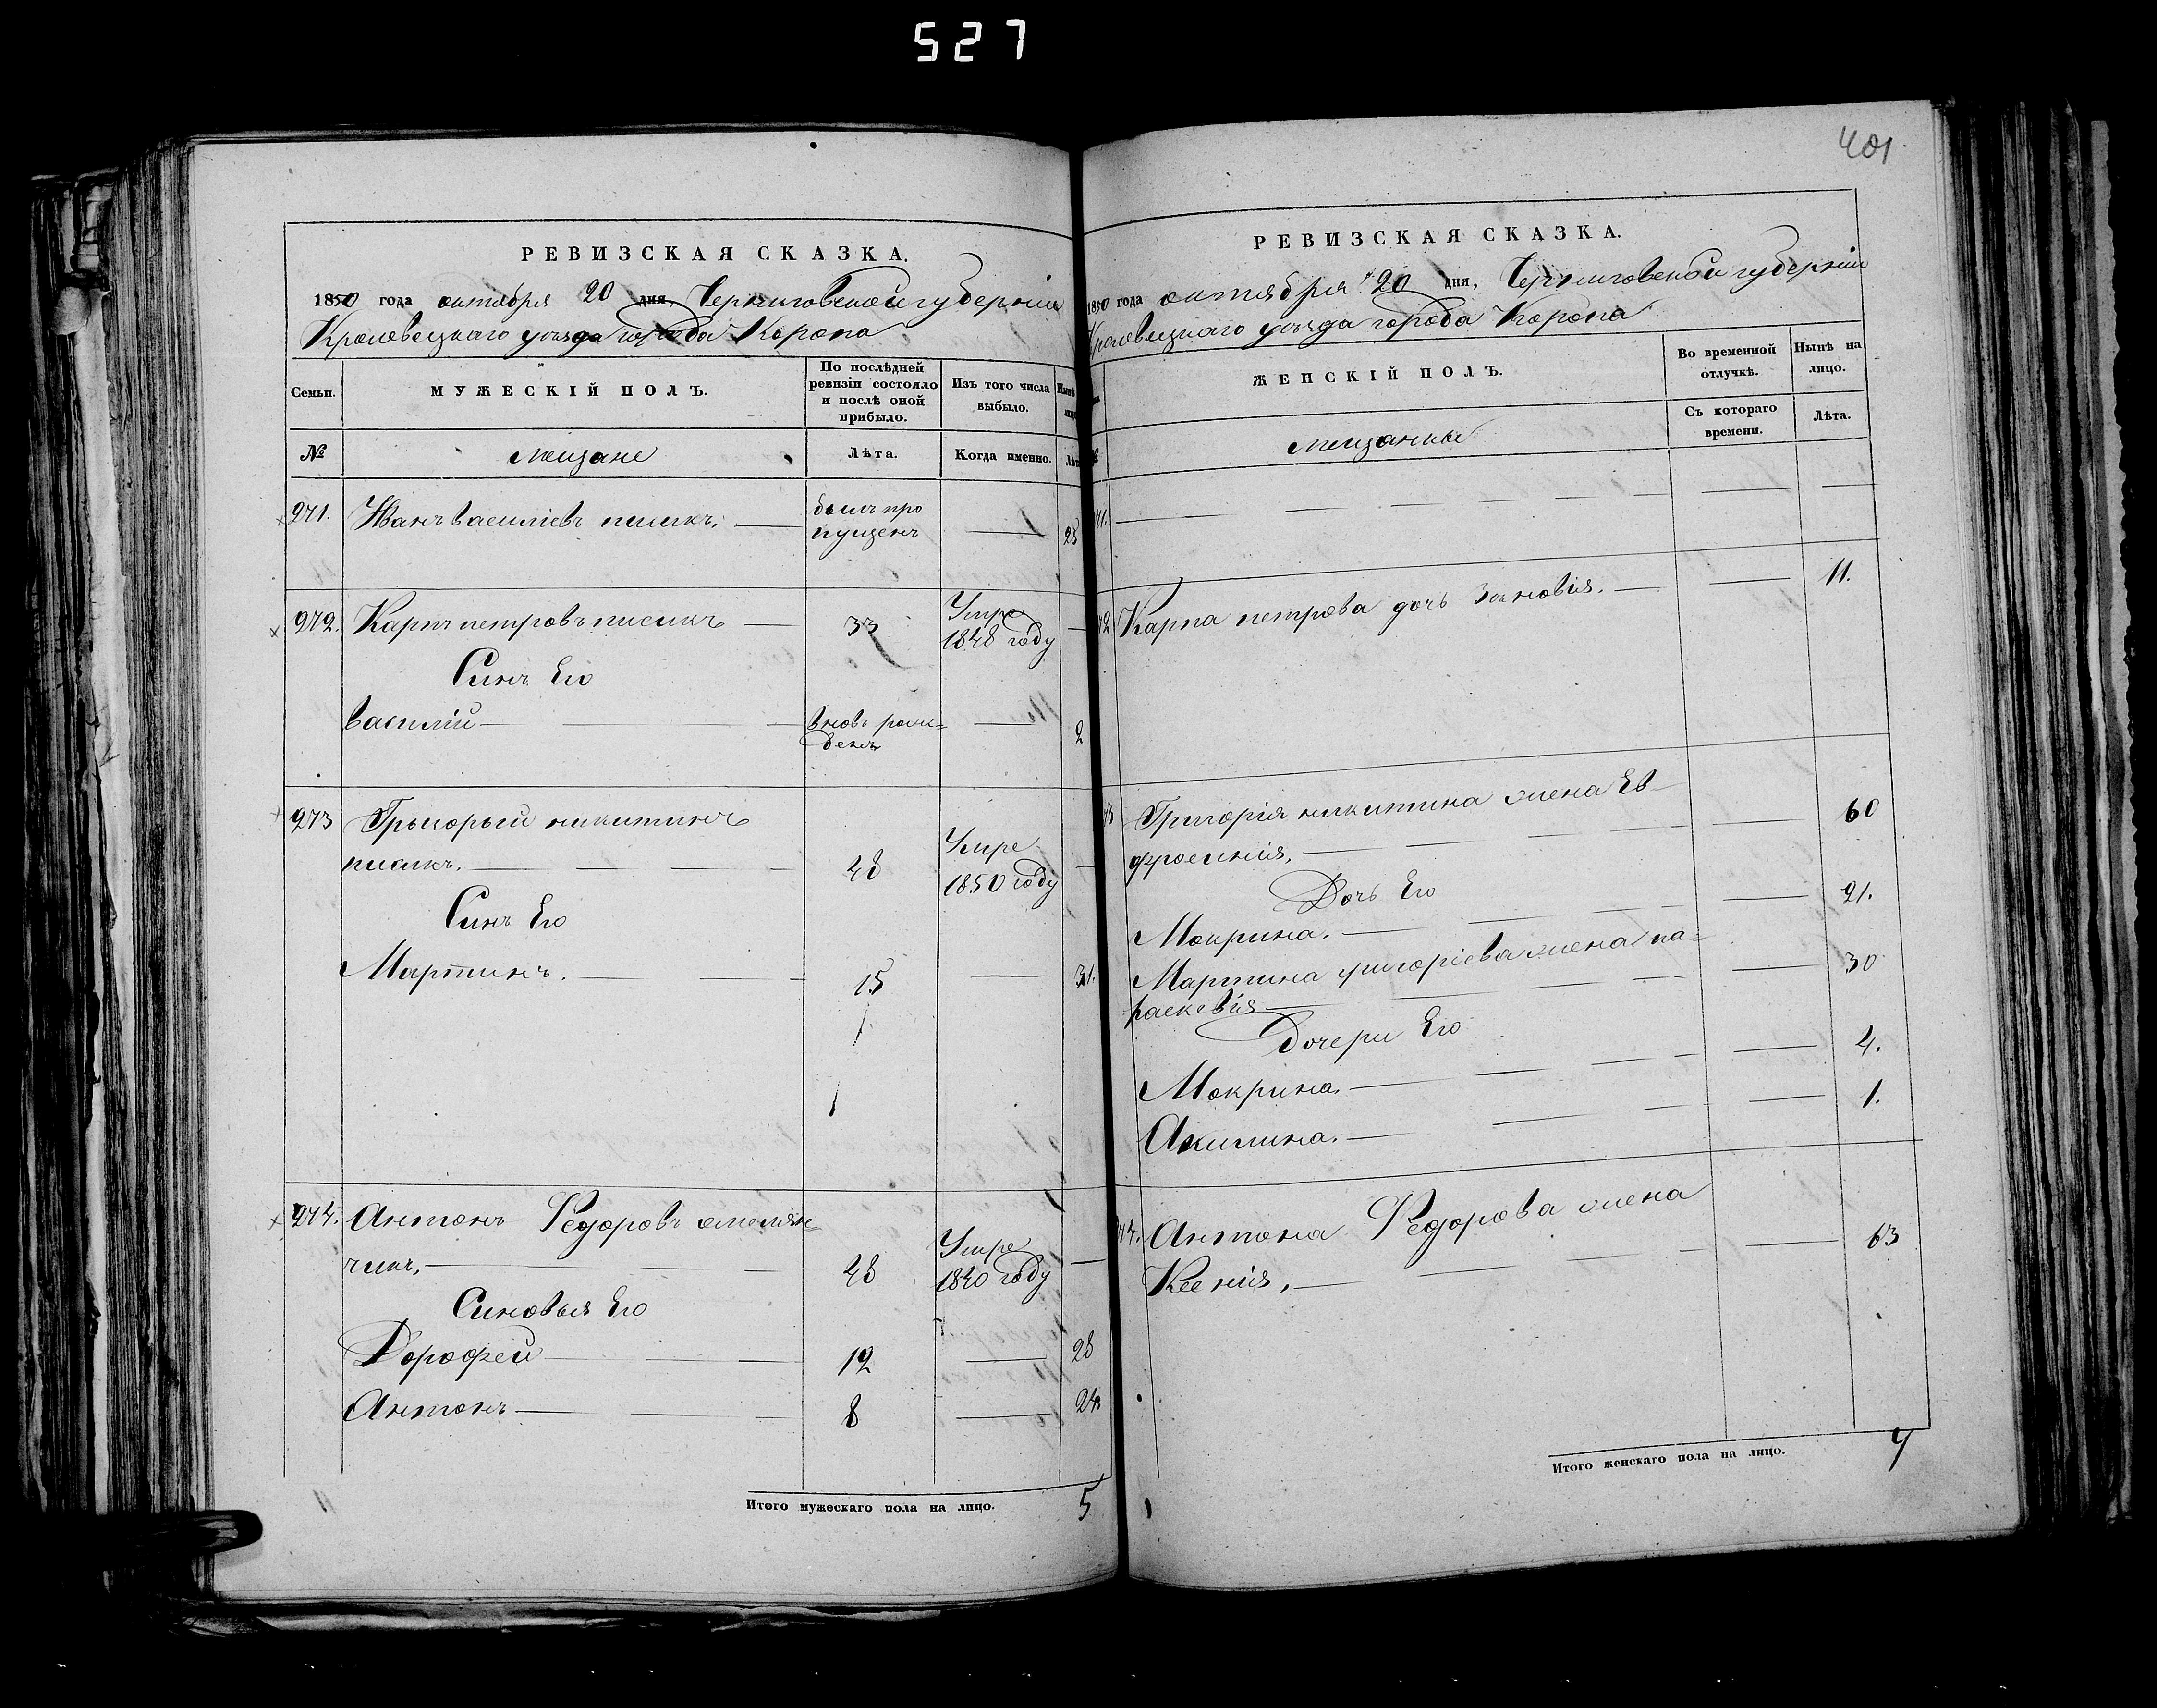 527
401
РЕВИЗСКАЯ СКАЗКА.
1850 года октября 20 дня, Черниговской губерніи
Кролевецкаго уѣзда города Коропа
Семьи.
МУЖЕСКІЙ ПОЛЪ.
По послѣдней ревизіи состояло и послѣ оной прибыло.
Изъ того числа выбыло.
Нынѣ
№
мещане
Лѣта.
Когда именно.
Лѣта
271. Иванъ василіевъ писикъ. былъ про
пущенъ
272. Карпъ петровъ писикъ 33 Умре
1848 году
Синъ Его
василій вновь рож=
денъ 2
273 Грыгорый никитинъ
писикъ. 48 Умре
1850 году
Синъ Его
Мартинъ. 15 31.
274. Антонъ Федоровъ омелян
чикъ, 48 Умре
1840 году
Синовья Его
Дорофей 12 28
Антонъ 8 24
Итого мужескаго пола на лицо. 5
РЕВИЗСКАЯ СКАЗКА.
1850 года октября 20 дня, Черниговской губерніи
Кролевецкаго уѣзда города Коропа
ЖЕНСКІЙ ПОЛЪ.
Во временной отлучкѣ.
Нынѣ на лицо.
мещанки
Съ котораго времени.
Лѣта.
71.
72 Карпа петрова дочь Зиновія. 11.
73 Григорія никитина жена Ев
фросинія, 60
Дочь Его
Мокрина. 21.
Мартина григоріева жена Па=
раскевія 30
Дочери Его
Мокрина. 4.
Акилина. 1.
74. Антона Федорова жена
Ксенія, 63
Итого женскаго пола на лицо. 7